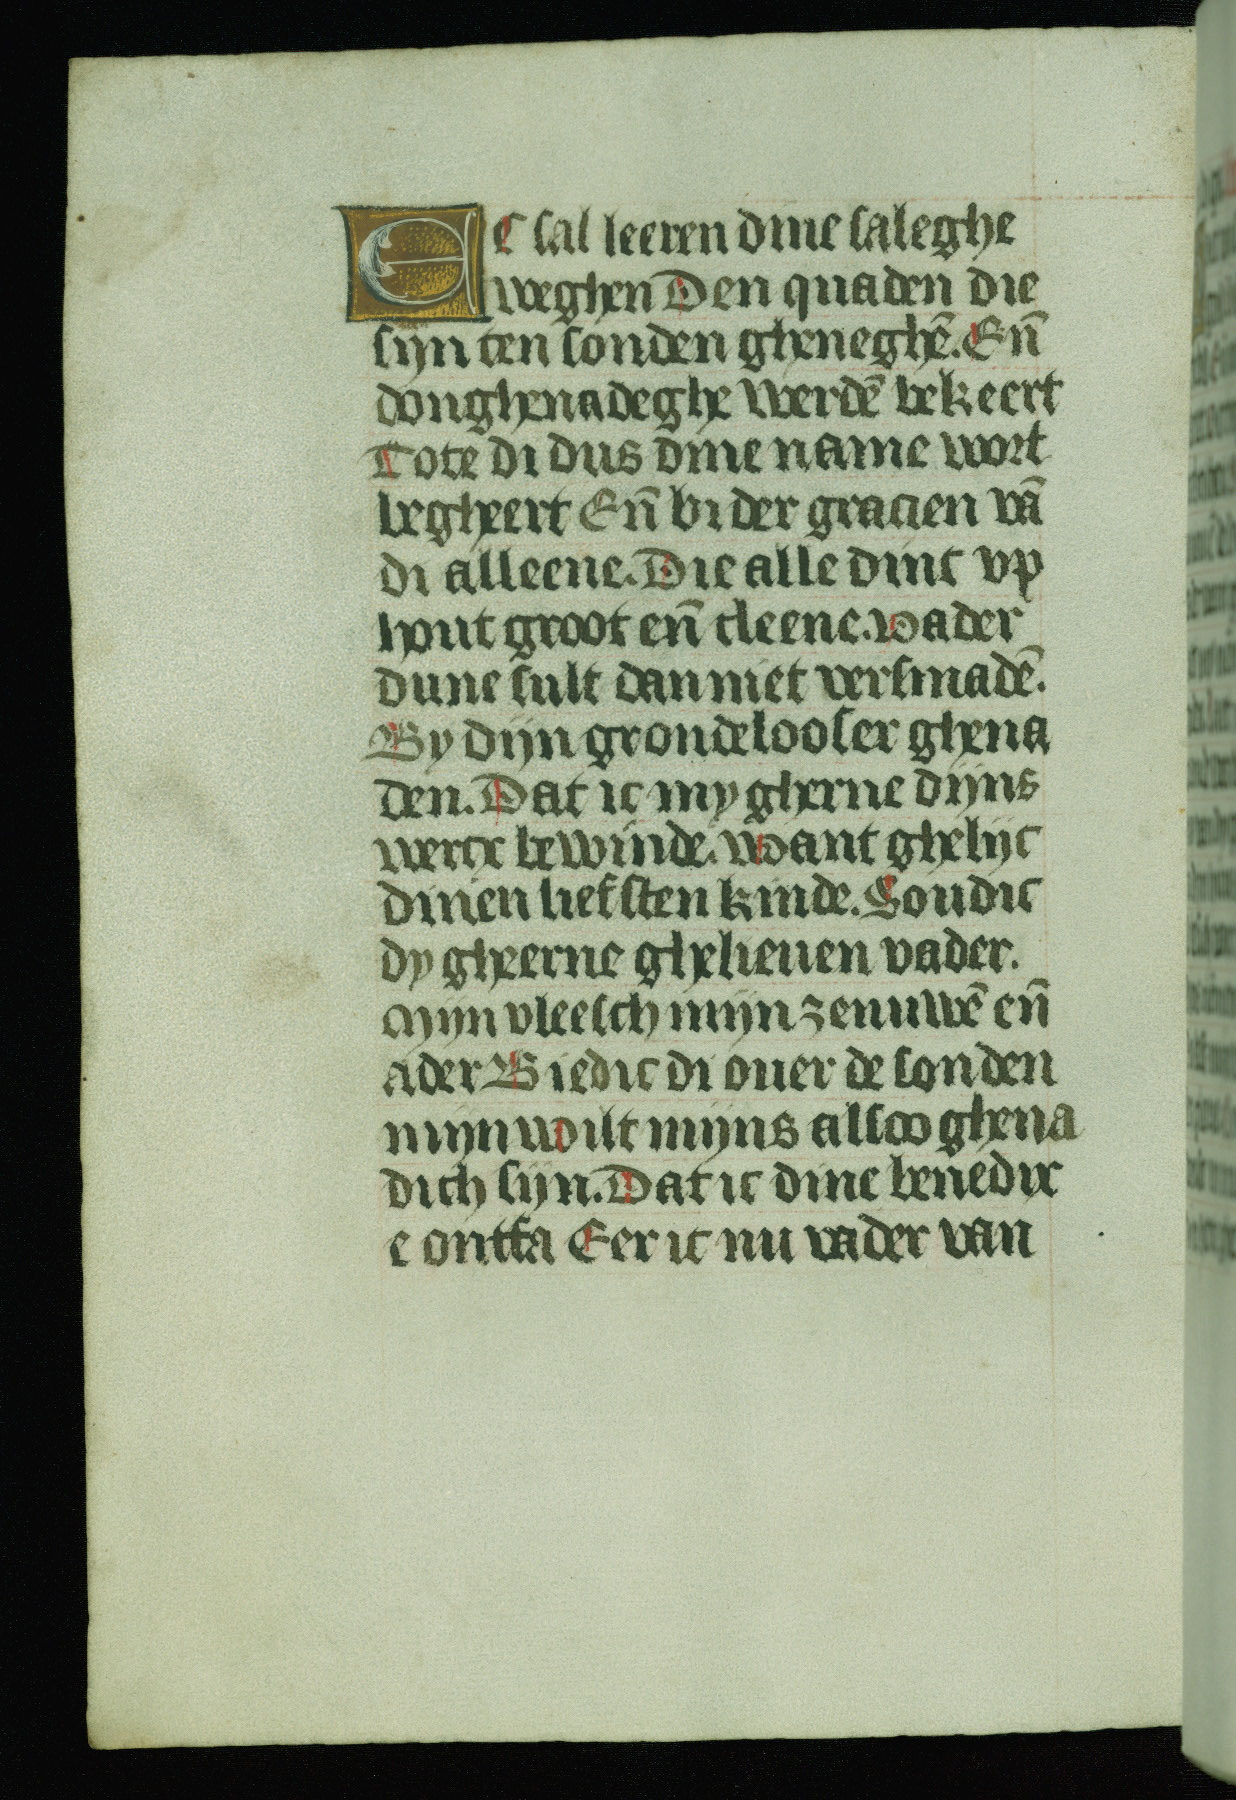 EC sal leeren dine saleghe
weghen Den quaden die
sijn ten sonden gheneghē. Eñ
donghenadeghe werdē bekeert
Tote di dus dine name wort
begheert Eñ bi der gracien vā
di alleene. Die alle dinc vp
hout groot eñ cleene. Vader
dune sult dan niet versmadē.
By dijn grondelooser ghena
den. Dat ic my gherne dijns
wercx bewinde. Want ghelijc
dinen liefsten kinde. Soudic
dy gheerne ghelieuen vader.
Mijn vleesch mijn zenuwē eñ
ader Biedic di ouer de sonden
mijn wilt mijns alsoo ghena
dich sijn. Dat ic dine benedix
e ontfa Eer ic nu vader van